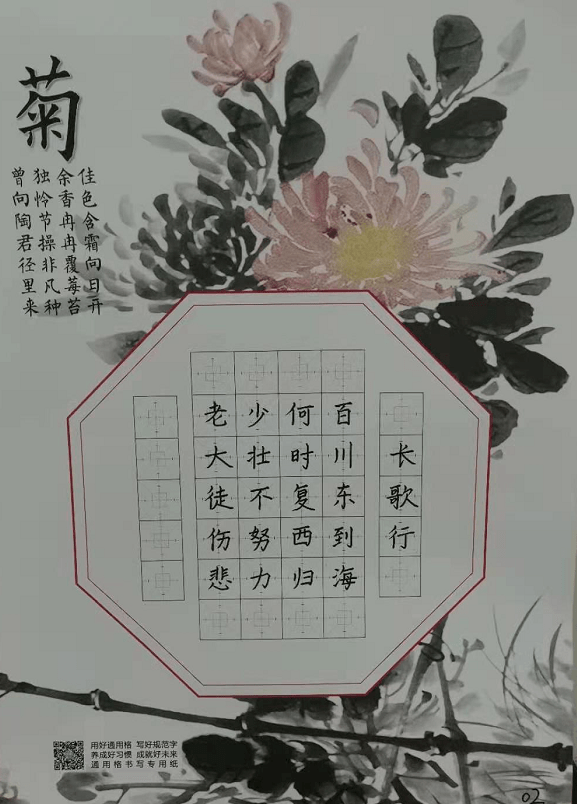 菊
佳色含霜向日开
余香冉冉覆莓苔
独怜节操非凡种
曾向陶君径里来
长歌行
百川东到海
何时复西归
少壮不努力
老大徒伤悲
用好通用格 写好规范字
养成好习惯 成就好未来
通用格书写专用纸
02